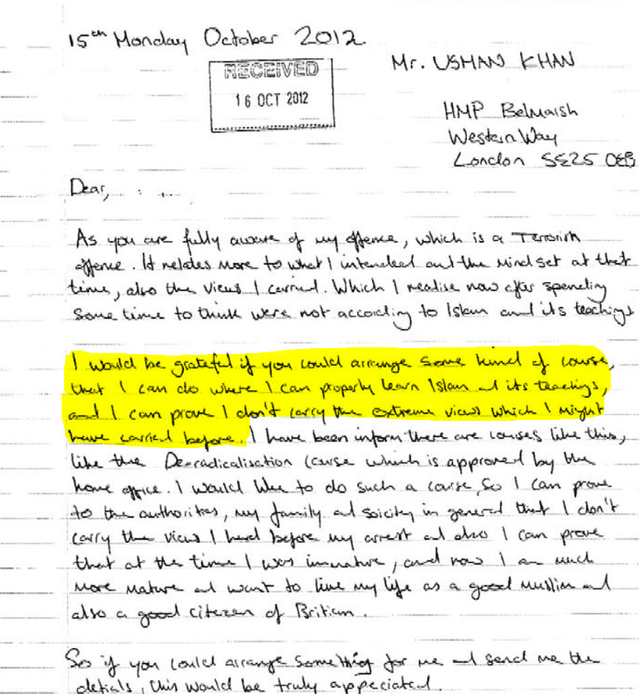 15th Monday October 2012
RECEIVED
16 OCT 2012
Mr. USHAN KHAN
HMP Belmarsh
Western Way
London SE25 0EB
Dear,
As you are fully aware of my offence, which is a Terrorism
offence. It relates more to what I intended and the mind set at that
time, also the views I carried. Which I realise now after spending
some time to think were not according to Islam and its teachings
I would be grateful if you could arrange some kind of course,
that I can do where I can properly learn Islam and its teachings,
and I can prove I don't carry the extreme views which I might
have carried before. I have been inform there are courses like this,
like the De-radicalisation course which is approved by the
home office. I would like to do such a course, so I can prove
to the authorities, my family and soicity in general that I don't
carry the views I had before my arrest and also I can prove
that at the time I was immature, and now I am much
more mature and want to live my life as a good muslim and
also a good citizen of Britian.
So if you could arrange something for me and send me the
detials, this would be truly appeciated.